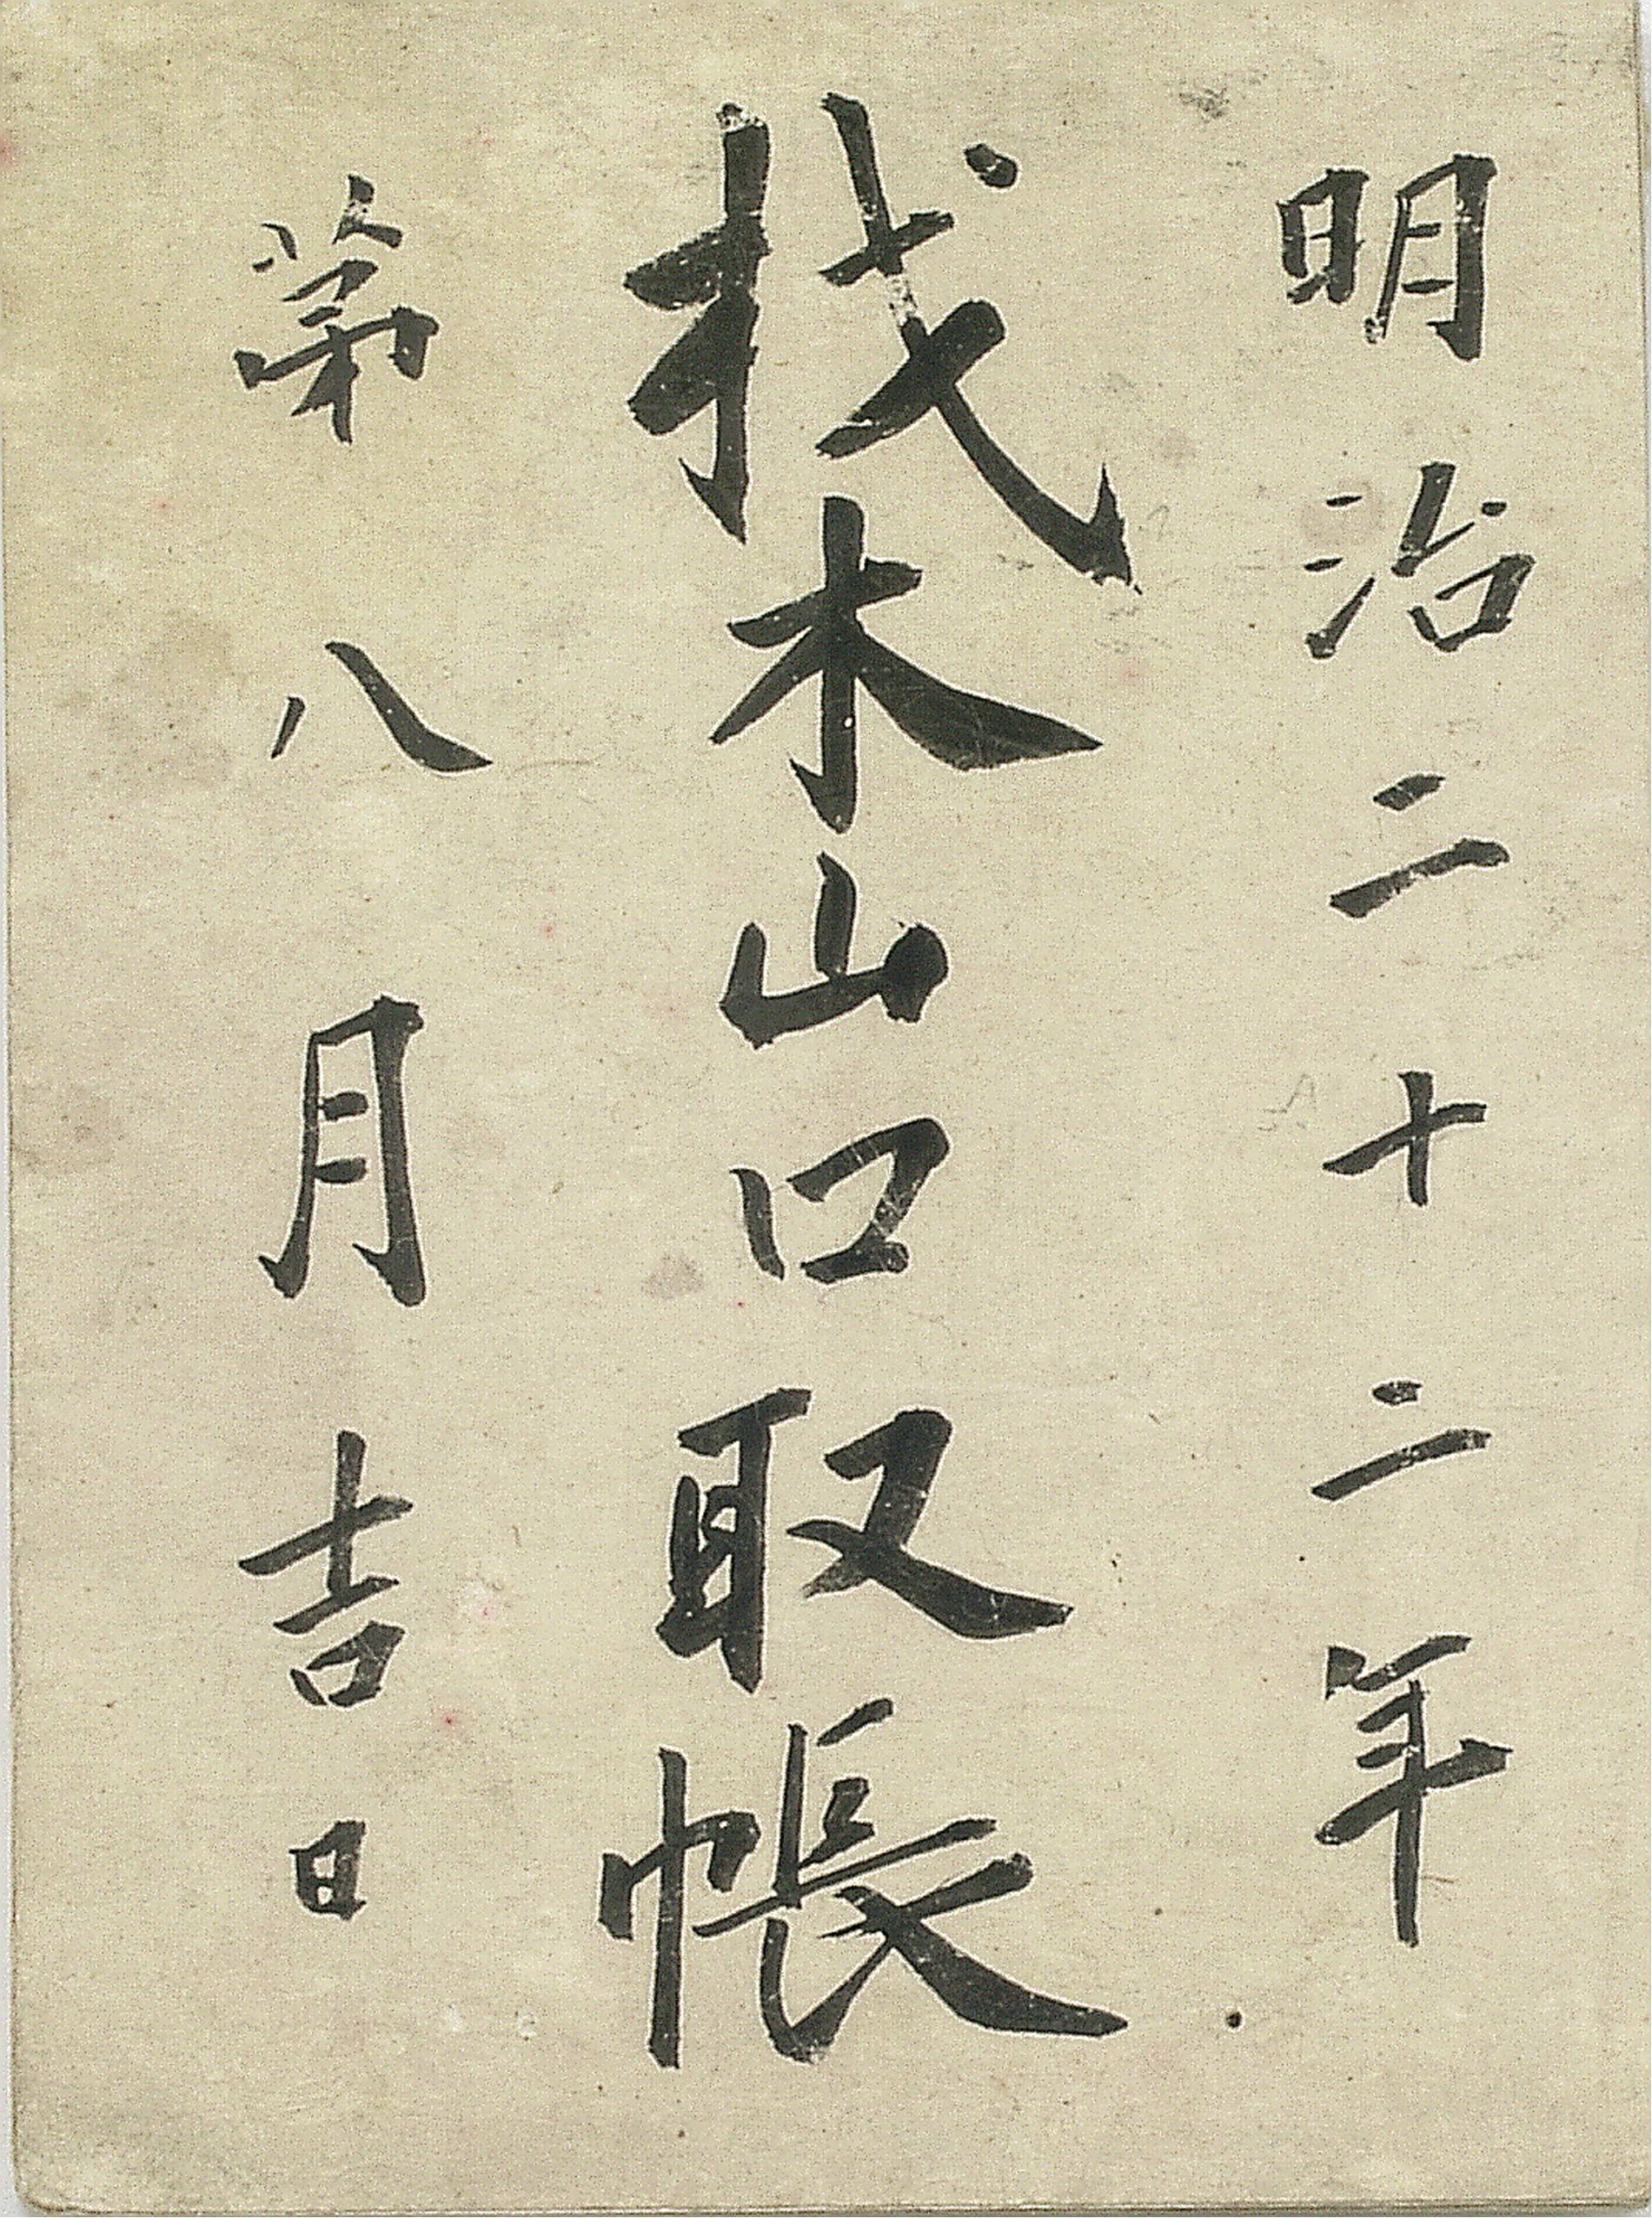 明治二十二年
找木山口取帳
第八月吉日